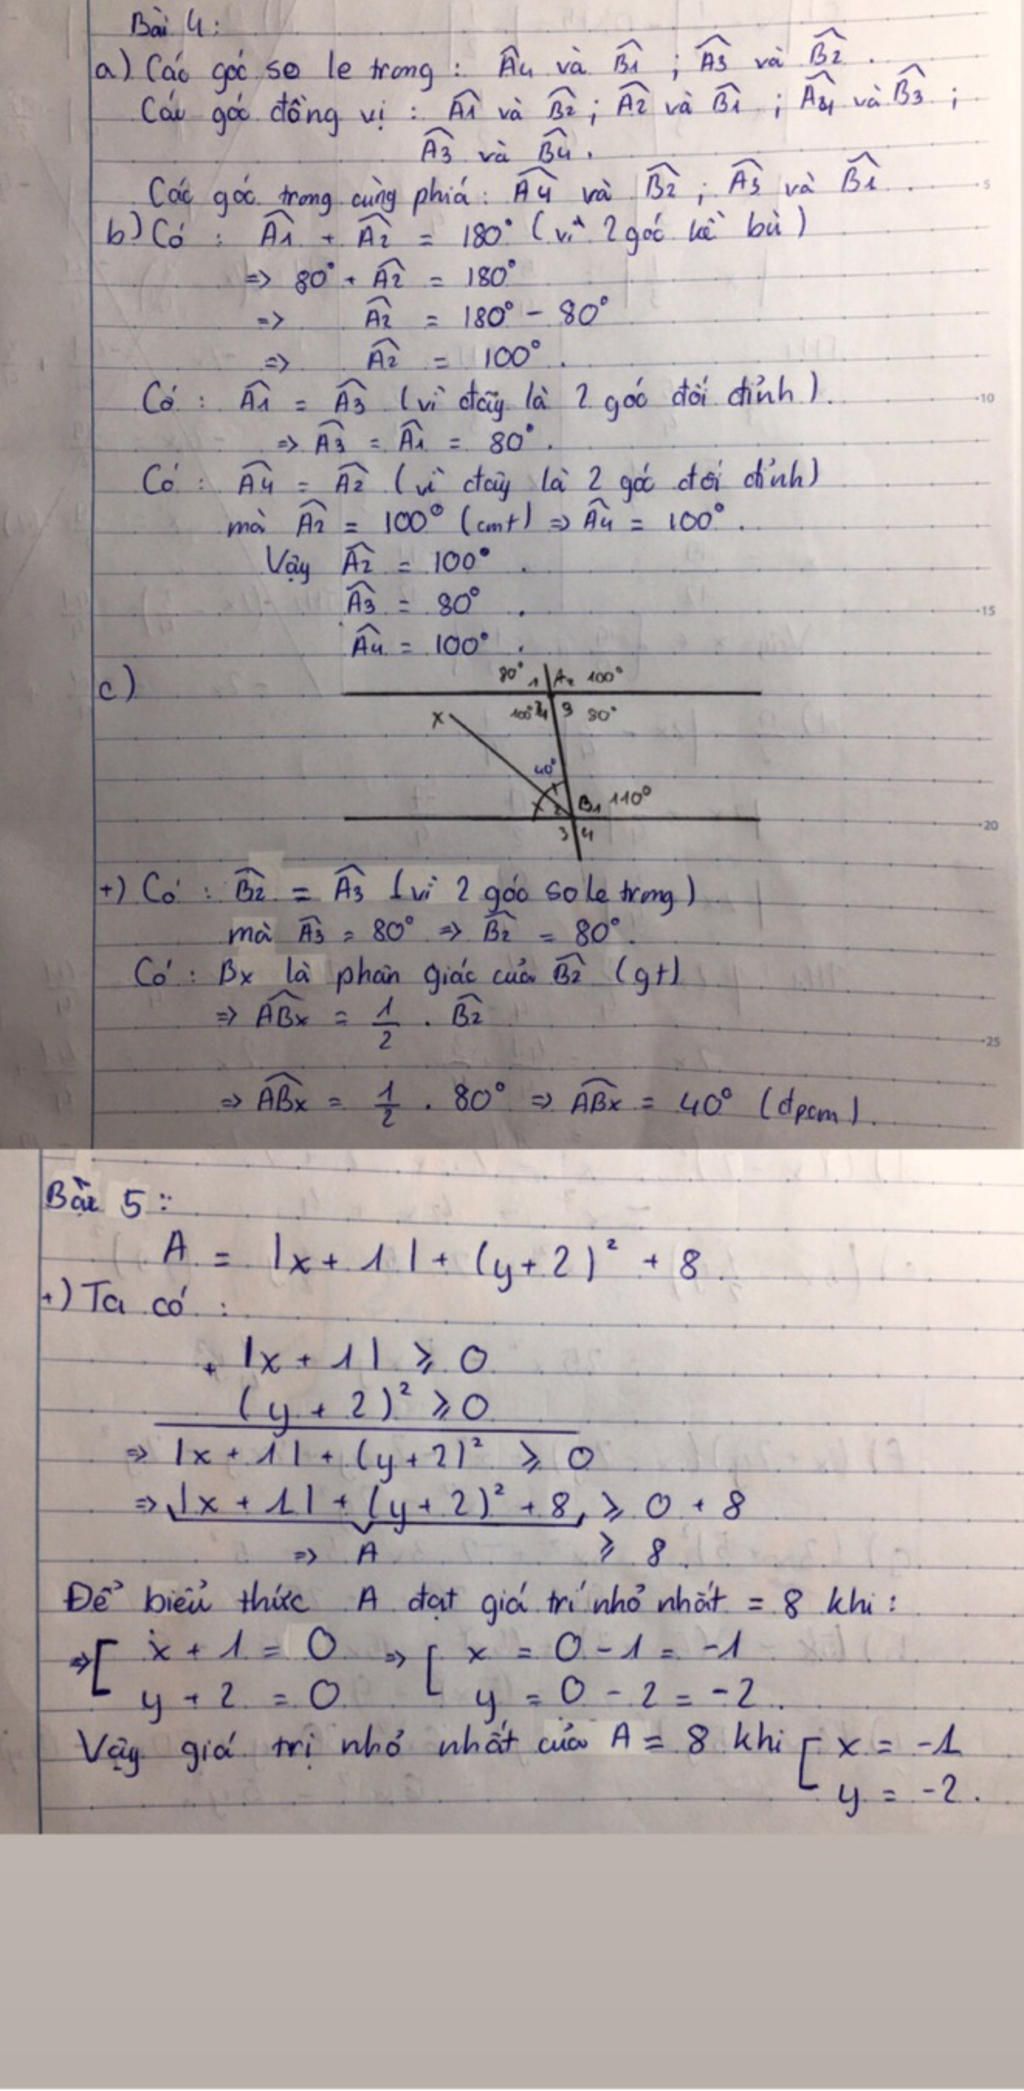 Bài 4:
a) Các góc so le trong : Â4 và B̂1 ; Â3 và B̂2 .
Các góc đồng vị : Â1 và B̂2 ; Â2 và B̂1 ; Â4 và B̂3 ;
Â3 và B̂4 .
Các góc trong cùng phiá : Â4 và B̂2 ; Â3 và B̂1 .
b) Có : Â1 + Â2 = 180° (vì 2 góc kề bù)
=> 80° + Â2 = 180°
=> Â2 = 180° - 80°
=> Â2 = 100° .
Có : Â1 = Â3 (vì đây là 2 góc đối đỉnh).
=> Â3 = Â1 = 80° .
Có : Â4 = Â2 (vì đây là 2 góc đối đỉnh)
mà Â2 = 100° (cmt) => Â4 = 100° .
Vậy Â2 = 100° .
Â3 = 80° .
Â4 = 100° .
c)
80° 1 A2 100°
100° 4 3 80°
x
40°
2 B1 110°
3 4
+) Có : B̂2 = Â3 (vì 2 góc so le trong)
mà Â3 = 80° => B̂2 = 80° .
Có : Bx là phân giác của B̂2 (gt)
=> ABx = 1/2 . B̂2
=> ABx = 1/2 . 80° => ABx = 40° (đpcm).
5
10
15
20
25
Bài 5 :
A = |x + 1| + (y + 2)² + 8 .
+) Ta có :
+ |x + 1| ⩾ 0
(y + 2)² ⩾ 0
=> |x + 1| + (y + 2)² ⩾ 0
=> |x + 1| + (y + 2)² + 8 ⩾ 0 + 8
=> A ⩾ 8
Để biểu thức A đạt giá trí nhỏ nhất = 8 khi :
=> [ x + 1 = 0 => [ x = 0 - 1 = -1
y + 2 = 0 y = 0 - 2 = -2 .
Vậy giá trị nhỏ nhất của A = 8 khi [ x = -1
y = -2 .